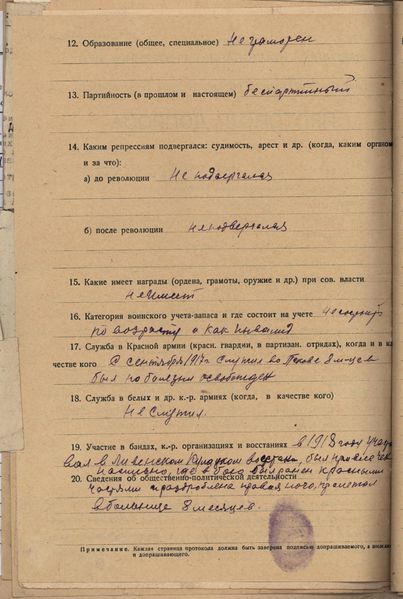 12. Образование (общее, специальное) Неграмотен
13. Партийность (в прошлом и настоящем) беспартийный
14. Каким репрессиям подвергался: судимость, арест и др. (когда, каким органом
и за что):
а) до революции Не подвергался
б) после революции не подвергался
15. Какие имеет награды (ордена, грамоты, оружие и др.) при сов. власти
не имеет
16. Категория воинского учета-запаса и где состоит на учете не состоит
по возрасту и как инвалид
17. Служба в Красной армии (красн. гвардии, в партизан. отрядах), когда и в ка
честве кого С сентября 1917г служил во Пскове 8 м-цев
был по болезни освобожден
18. Служба в белых и др. к.-р. армиях (когда, в качестве кого)
Не служил
19. Участие в бандах, к.-р. организациях и восстаниях в 1918 году участ
вовал в Ливенском кулацком восстании, был
насильно, где в бою был ранен красными
20. Сведения об общественно-политической деятельности
частями раздроблена правая нога, пролежал
в больнице 8 месяцев.
Примечание. Каждая страница протокола должна быть заверена подписью допрашиваемого, а
и допрашивающего.